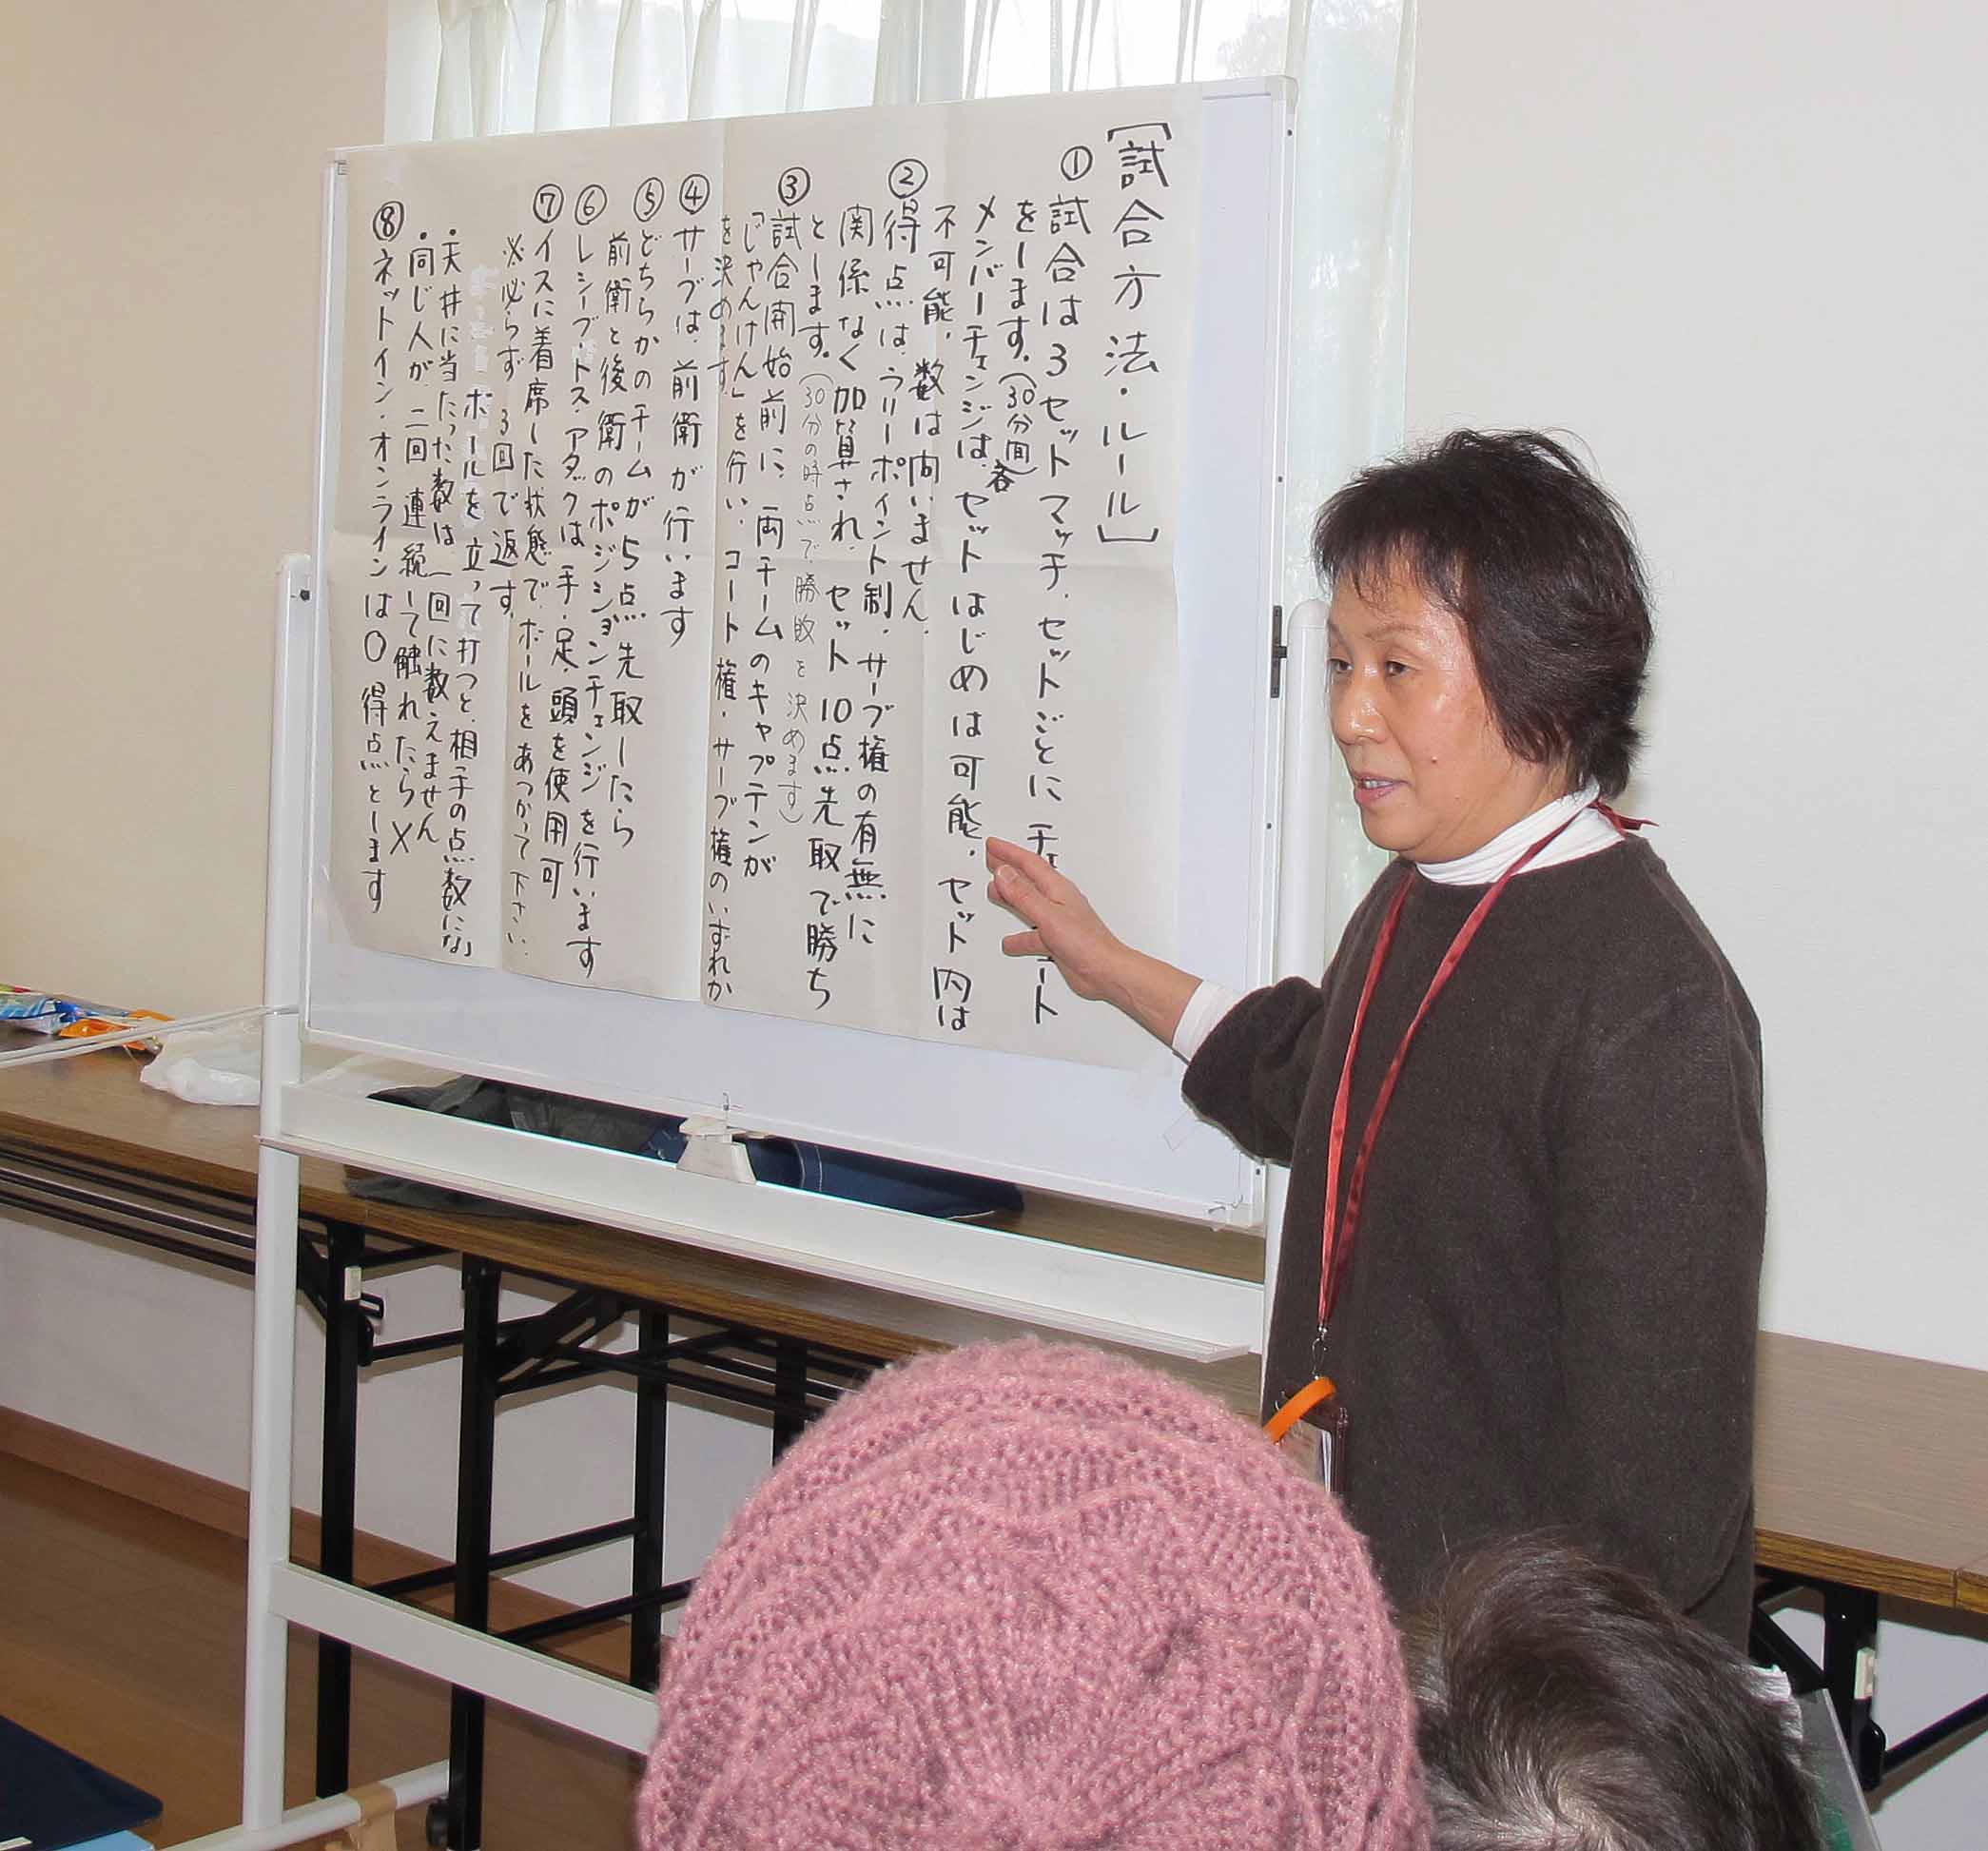 [試合方法・ルール]
① 試合は3セットマッチ、セットごとにチェ ート
をします。(30分間)
メンバーチェンジは、各セットはじめは可能、セット内は
不可能、数は問いません。
② 得点は、ラリーポイント制、サーブ権の有無に
関係なく加算され、セット10点先取で勝ち
とします。(30分の時点で勝敗を決めます)
③ 試合開始前に、両チームのキャプテンが
「じゃんけん」を行い、コート権・サーブ権のいずれか
を決めます
④ サーブは、前衛が行います
⑤ どちらかのチームが5点先取したら
前衛と後衛のポジションチェンジを行います
⑥ レシーブ、トス、アタックは、手・足・頭を使用可
⑦ イスに着席した状態で、ボールをあつかって下さい、
※必らず 3回で返す。
ボールを立って打つと、相手の点数にな
・天井に当たった数は、一回に数えません
・同じ人が、二回連続して触れたら×
⑧ ネットイン・オンラインは〇得点とします